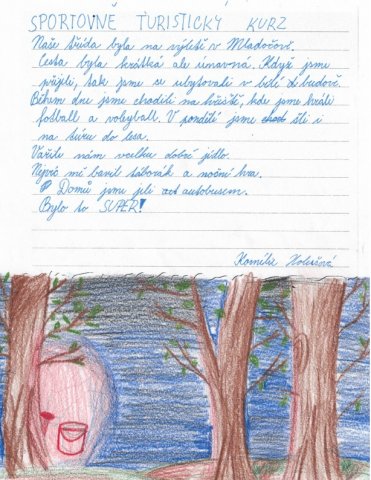 SPORTOVNĚ TURISTICKÝ KURZ
Naše třída byla na výletě v Mladočově.
Cesta byla krátká ale únavná. Když jsme
přijeli, tak jsme se ubytovali v bílé budově.
Během dne jsme chodili na hřiště, kde jsme hráli
fotball a voleyball. V pondělí jsme šli i
na túru do lesa.
Vařili nám vcelku dobré jídlo.
Nejvíc mě bavil táborák a noční hra.
Domů jsme jeli autobusem.
Bylo to SUPER!
Kamilie Holušová